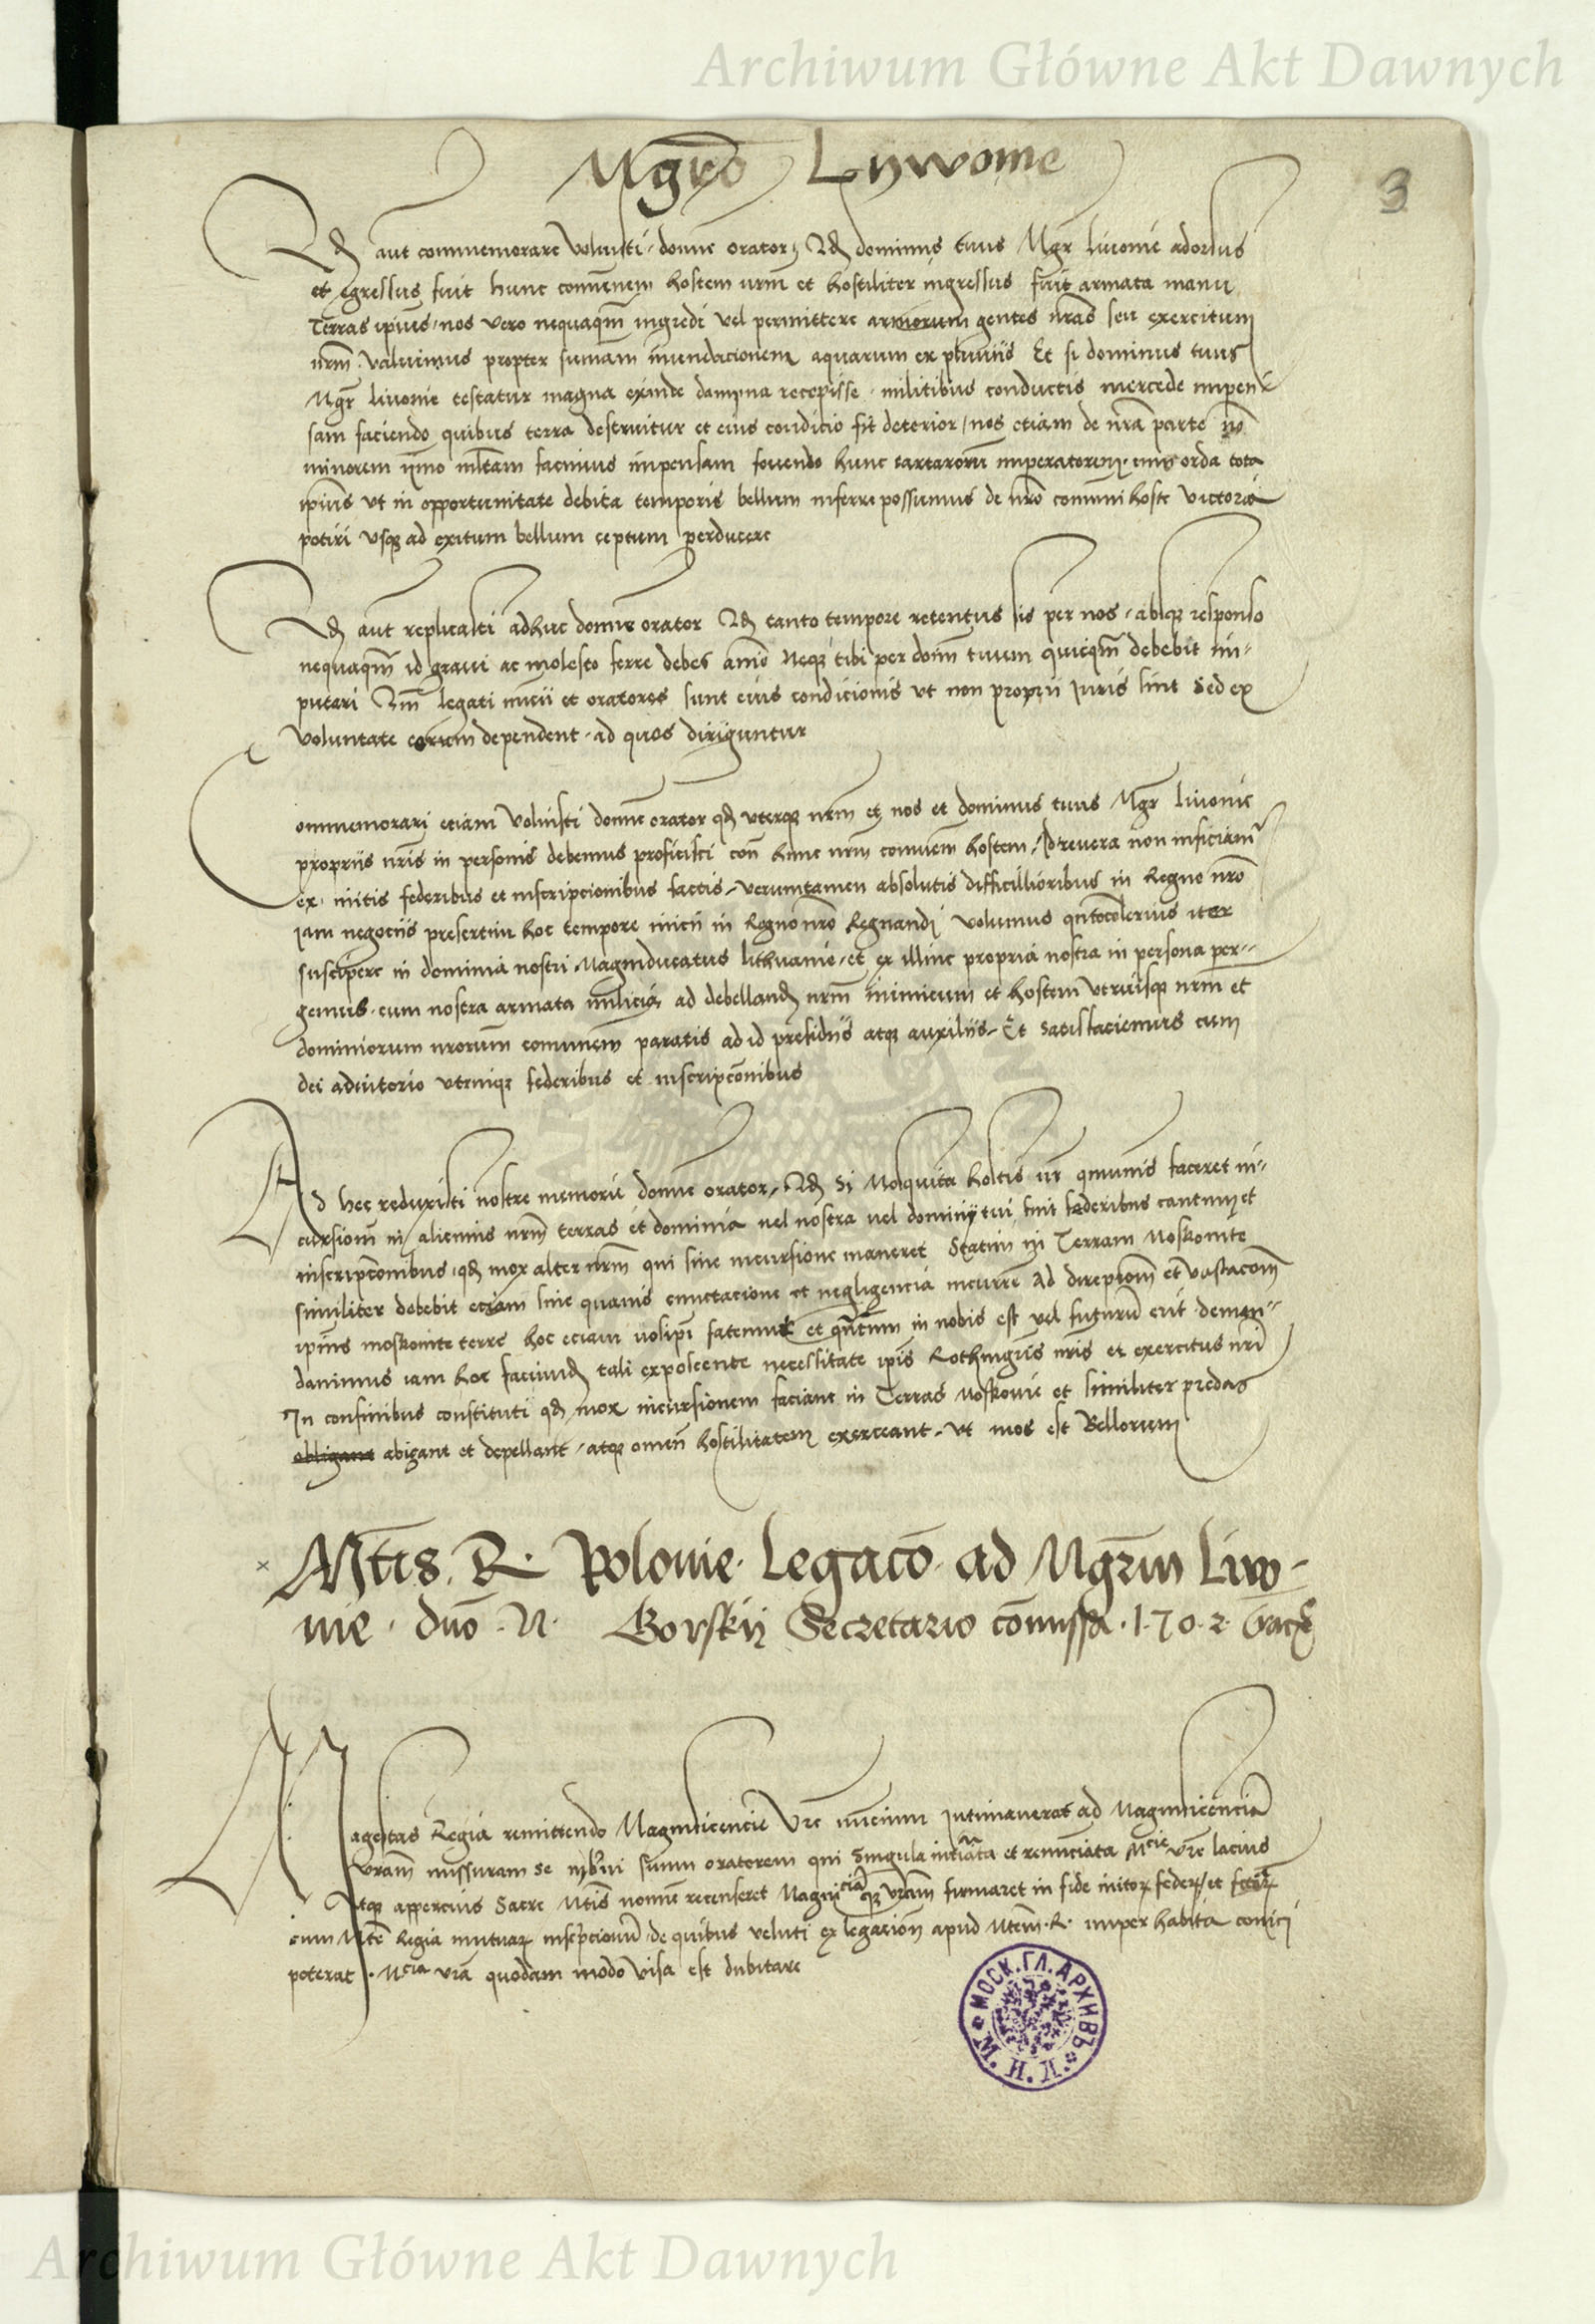 Archiwum Główne Akt Dawnych
Mgro Lywonie
3
Qd aut commemorare voluisti domine orator Qd dominus tuus Mgr livonie adorsus
et egressus fuit hunc comunem hostem nrm et hostiliter ingressus fuit armata manu
Terras ipius nos vero nequaqm ingredi vel permittere armorum gentes nras seu exercitum
nrm valuimus propter sumam inundacionem aquarum ex pluuiis Et si dominus tuus
Mgr livonie testatur magna exinde dampna recepisse militibus conductis mercede impen
sam faciendo quibus terra destruitur et eius condicio fit deterior nos etiam de nra parte no
minorem ymo multam facimus impensam fovendo hunc tartarorum imperatorem cum orda tota
ipius vt in opportunitate debita temporis bellum inferre possumus de nro comuni hoste victoria
potiri vsq ad exitum bellum ceptum perducere
Qd aut replicasti adhuc domine orator Qd tanto tempore retentus sis per nos absq responso
nequaqm id graui ac molesto ferre debes animo Neq tibi per dom tuum quicqm debebit im-
putari Qm legati nuncii et oratores sunt eius condicionis vt non proprii iuris sint Sed ex
voluntate eorum dependent ad quos diriguntur
Commemorari etiam voluisti domine orator qd vterq nrm et nos et dominus tuus Mgr livonie
propriis nris in personis debemus proficisci con hunc nrm comunem hostem Id revera non inficiamr
ex initis federibus et inscripcionibus factis verumtamen absolutis difficillioribus in Regno nro
iam negociis presertim hoc tempore inicii in Regno nro Regnandi volumus qntocelerius iter
suscipere in dominia nostri Magniducatus lithuanie et ex illinc propria nostra in persona per-
gemus cum nostra armata milicia ad debelland nrm inimicum et hostem vtriusq nrm et
dominiorum nrorum comunem paratis ad id presidiis atq auxiliis Et satisfaciemus cum
dei adiutorio vtrinq federibus et inscripconibus
Ad hec reduxisti nostre memorie domine orator Qd Si Mosquita hostis nr comunis faceret in-
cursiom in alicuius nrm terras et dominia vel nostra vel dominii tui sint federibus cautum et
inscripconibus qd mox alter nrm qui sine incursione maneret Statim in Terram Moskouite
similiter debebit eciam sine quauis cunctacione et negligencia incurre Ad direpcom et vastacom
ipius moskouite terre hoc eciam nosipi fatemur et qntum in nobis est vel futuru erit deman-
dauimus iam hoc faciund tali exposcente necessitate ipis Rothmgris nris et exercitus nri
In confinibus constituti qd mox incursionem faciant in Terras Moskouie et similiter predas
abigant et depellant atq omem hostilitatem exerceant vt mos est Bellorum
Mtis R Polonie Legaco ad Mgrm Livo-
nie duo N Gorskij Secretario comissa
Magestas Regia remittendo Magnificencie Vre nuncium Intimauerat ad Magnificencia
vram missuram se suum oratorem qui singula et renunciata Mcie vre lacius
atq appercius Sacre Mtis nomie recenseret Magnicia q vram firmaret in fide initor feder et
cum Mte Regia mutuar inscripcionu de quibus veluti ex legacion apud Mtem R nuper habita conici
poterat Mcia vra quodam modo visa est dubitare
МОСК. ГЛ. АРХИВЪ
М. И. Д.
Archiwum Główne Akt Dawnych